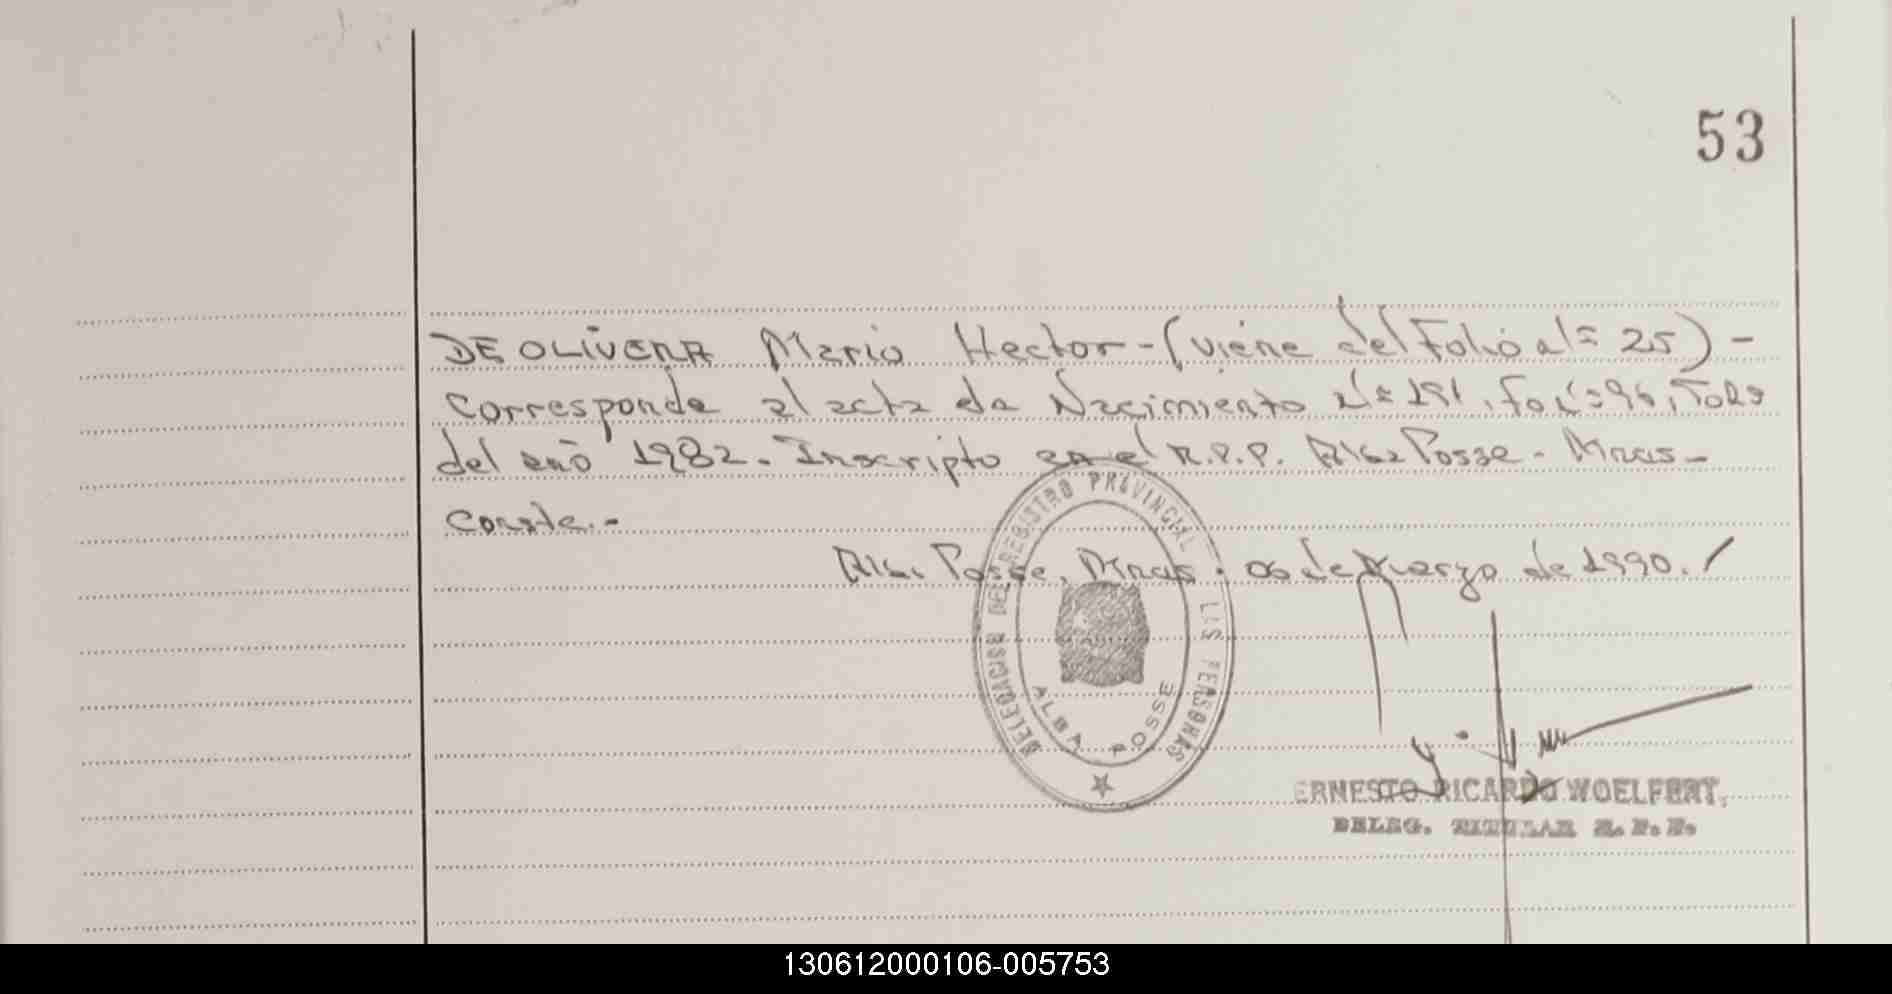 53
DE OLIVERA Mario Hector - (viene del Folio al = 25) -
Corresponde al acta de Nacimiento Nº 191, Fo
del año 1982. Inscripto en el R.P.P. Alba Posse - Mnes -
Conste.-
Alba Posse, Mnes. 06 de Marzo de 1990. /
DELEGACION DEL REGISTRO PROVINCIAL LAS PERSONAS
ALBA POSSE
ERNESTO RICARDO WOELFERT
DELEG. TITULAR R. P. P.
130612000106-005753